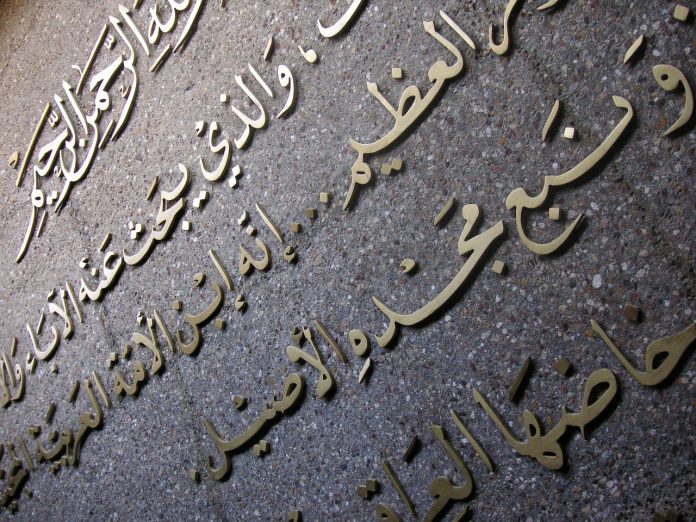 الله الرَّحمن الرَّحيم
، وَالذيْ يبحَث عَنْه الآبَاء
العظيم ... إنه إبْن الأمّة العَربيَّة
نَبع مَجْدهِ الأصيْل.
خاضهَا العراق